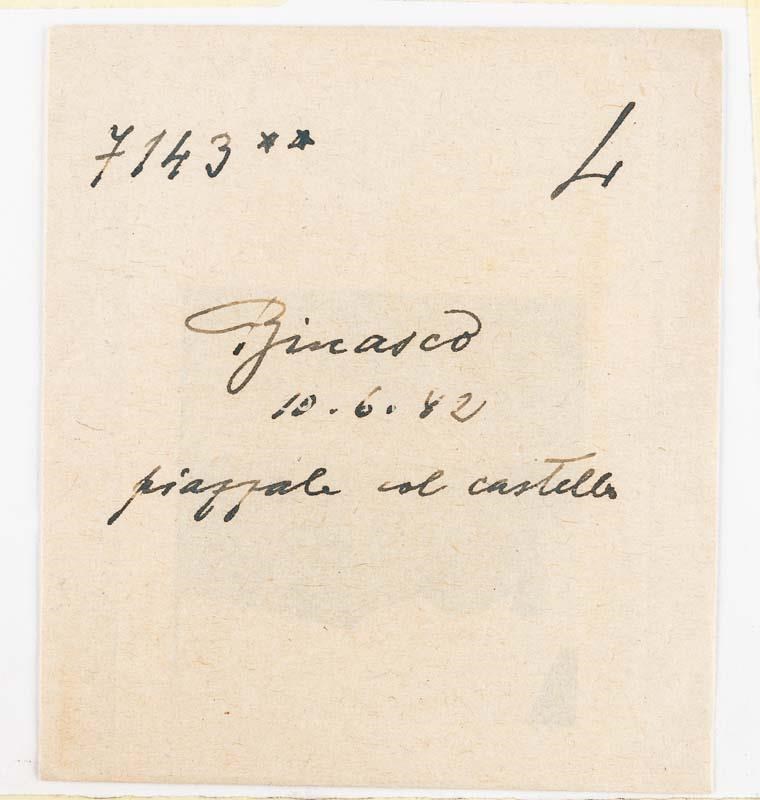 7143** L
Binasco
10.6.42
piazzale col castello